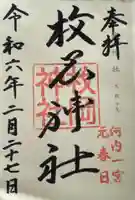 奉拝
河内一宮
元春日
枚岡神社
枚岡
神社
令和六年二月二十七日